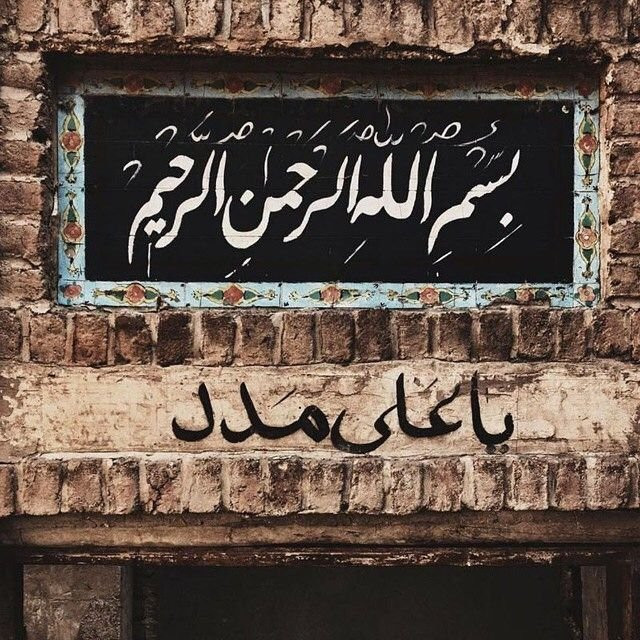 بِسْمِ اللهِ الرَّحْمنِ الرَّحِيمِ
يا عَلى مَدَد